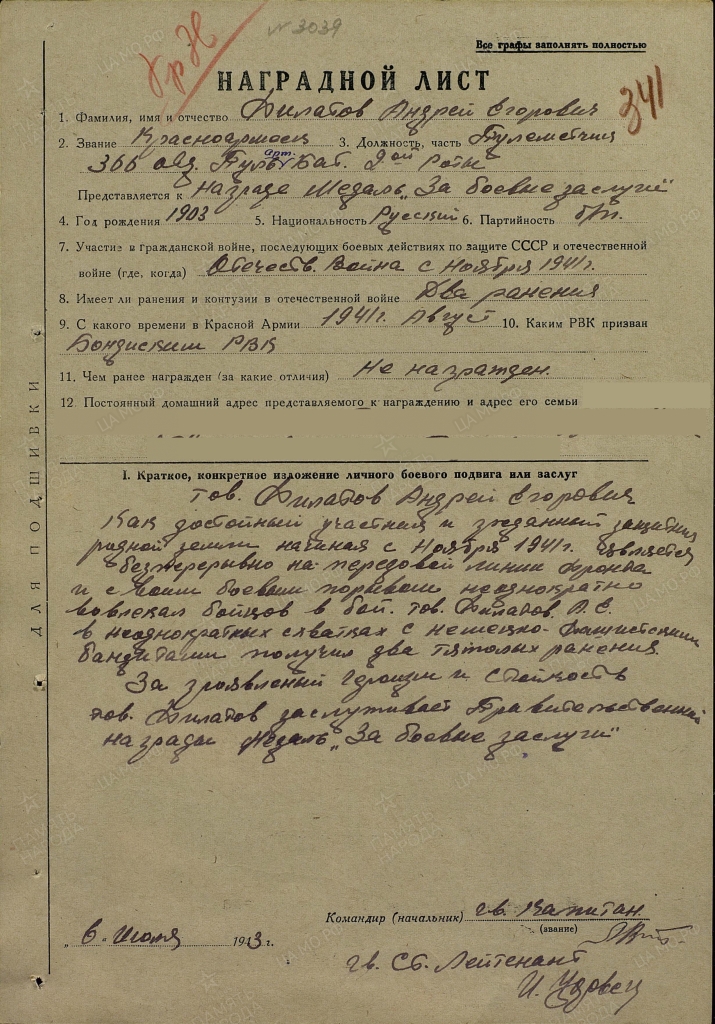 № 3039
Все графы заполнять полностью
НАГРАДНОЙ ЛИСТ
341
1. Фамилия, имя и отчество Филатов Андрей Егорович
2. Звание Красноармеец 3. Должность, часть Пулеметчик
366 отд. Пуль. арт. Бат. 2ой Роты
Представляется к Награде Медаль „За боевые заслуги"
4. Год рождения 1903 5. Национальность Русский 6. Партийность б/п.
7. Участие в гражданской войне, последующих боевых действиях по защите СССР и отечественной
войне (где, когда) Отечеств. Война с Ноября 1941 г.
8. Имеет ли ранения и контузии в отечественной войне Два ранения
9. С какого времени в Красной Армии 1941 г. Август 10. Каким РВК призван
РВК
11. Чем ранее награжден (за какие отличия) Не награжден.
12. Постоянный домашний адрес представляемого к награждению и адрес его семьи
ДЛЯ ПОДШИВКИ
I. Краткое, конкретное изложение личного боевого подвига или заслуг
Тов. Филатов Андрей Егорович
Как достойный участник и преданный защитник
родной земли начиная с Ноября 1941 г. является
безпрерывно на передовой линии фронта
и своим боевым порывом неоднократно
вовлекал бойцов в бой. тов. Филатов А.Е.
в неоднократных схватках с немецко-фашистскими
бандитами получил два тяжолых ранения.
За проявленый героизм и стойкость
тов. Филатов заслуживает Правительственной
награды Медаль „За боевые заслуги"
Командир (начальник) гв. Капитан
(звание)
„ 6. Июля 1943 г.
гв. Ст. Лейтенант